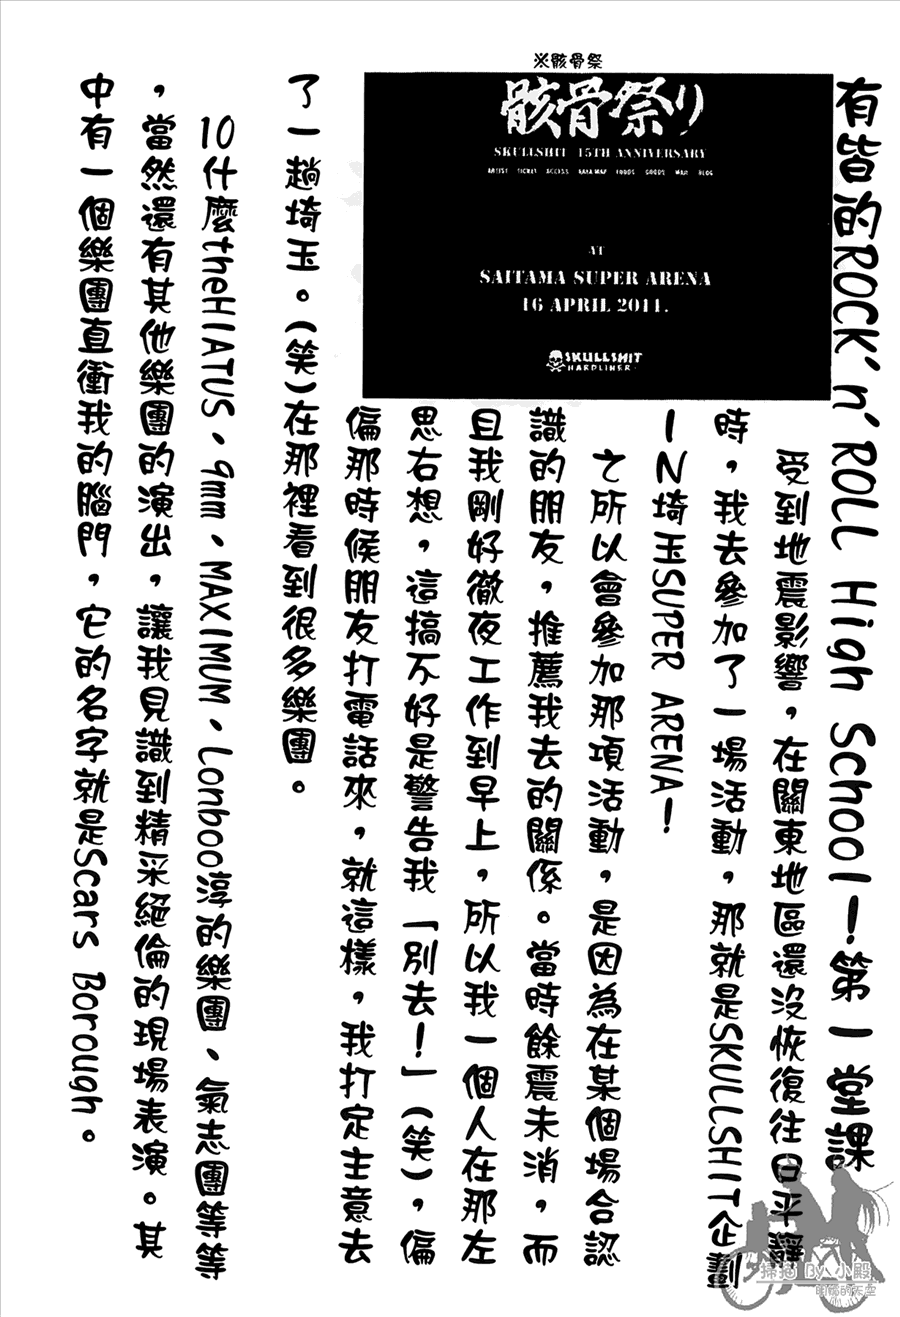 有皆的ROCK'n'ROLL High School！第一堂課
※骸骨祭
骸骨祭り
SKULLSHIT 15TH ANNIVERSARY
ARTIST TICKET ACCESS AREA MAP FOODS GOODS MAIL BLOG
AT
SAITAMA SUPER ARENA
16 APRIL 2011.
SKULLSHIT
HARDLINER
受到地震影響，在關東地區還沒恢復往日平靜
時，我去參加了一場活動，那就是SKULLSHIT企劃
IN埼玉SUPER ARENA！
之所以會參加那項活動，是因為在某個場合認
識的朋友，推薦我去的關係。當時餘震未消，而
且我剛好徹夜工作到早上，所以我一個人在那左
思右想，這搞不好是警告我「別去！」（笑），偏
偏那時候朋友打電話來，就這樣，我打定主意去
了一趟埼玉。（笑）在那裡看到很多樂團。
10什麼theHIATUS、9mm、MAXIMUM、Lonboo淳的樂團、氣志團等等
，當然還有其他樂團的演出，讓我見識到精采絕倫的現場表演。其
中有一個樂團直衝我的腦門，它的名字就是Scars Borough。
掃描 By 小殿